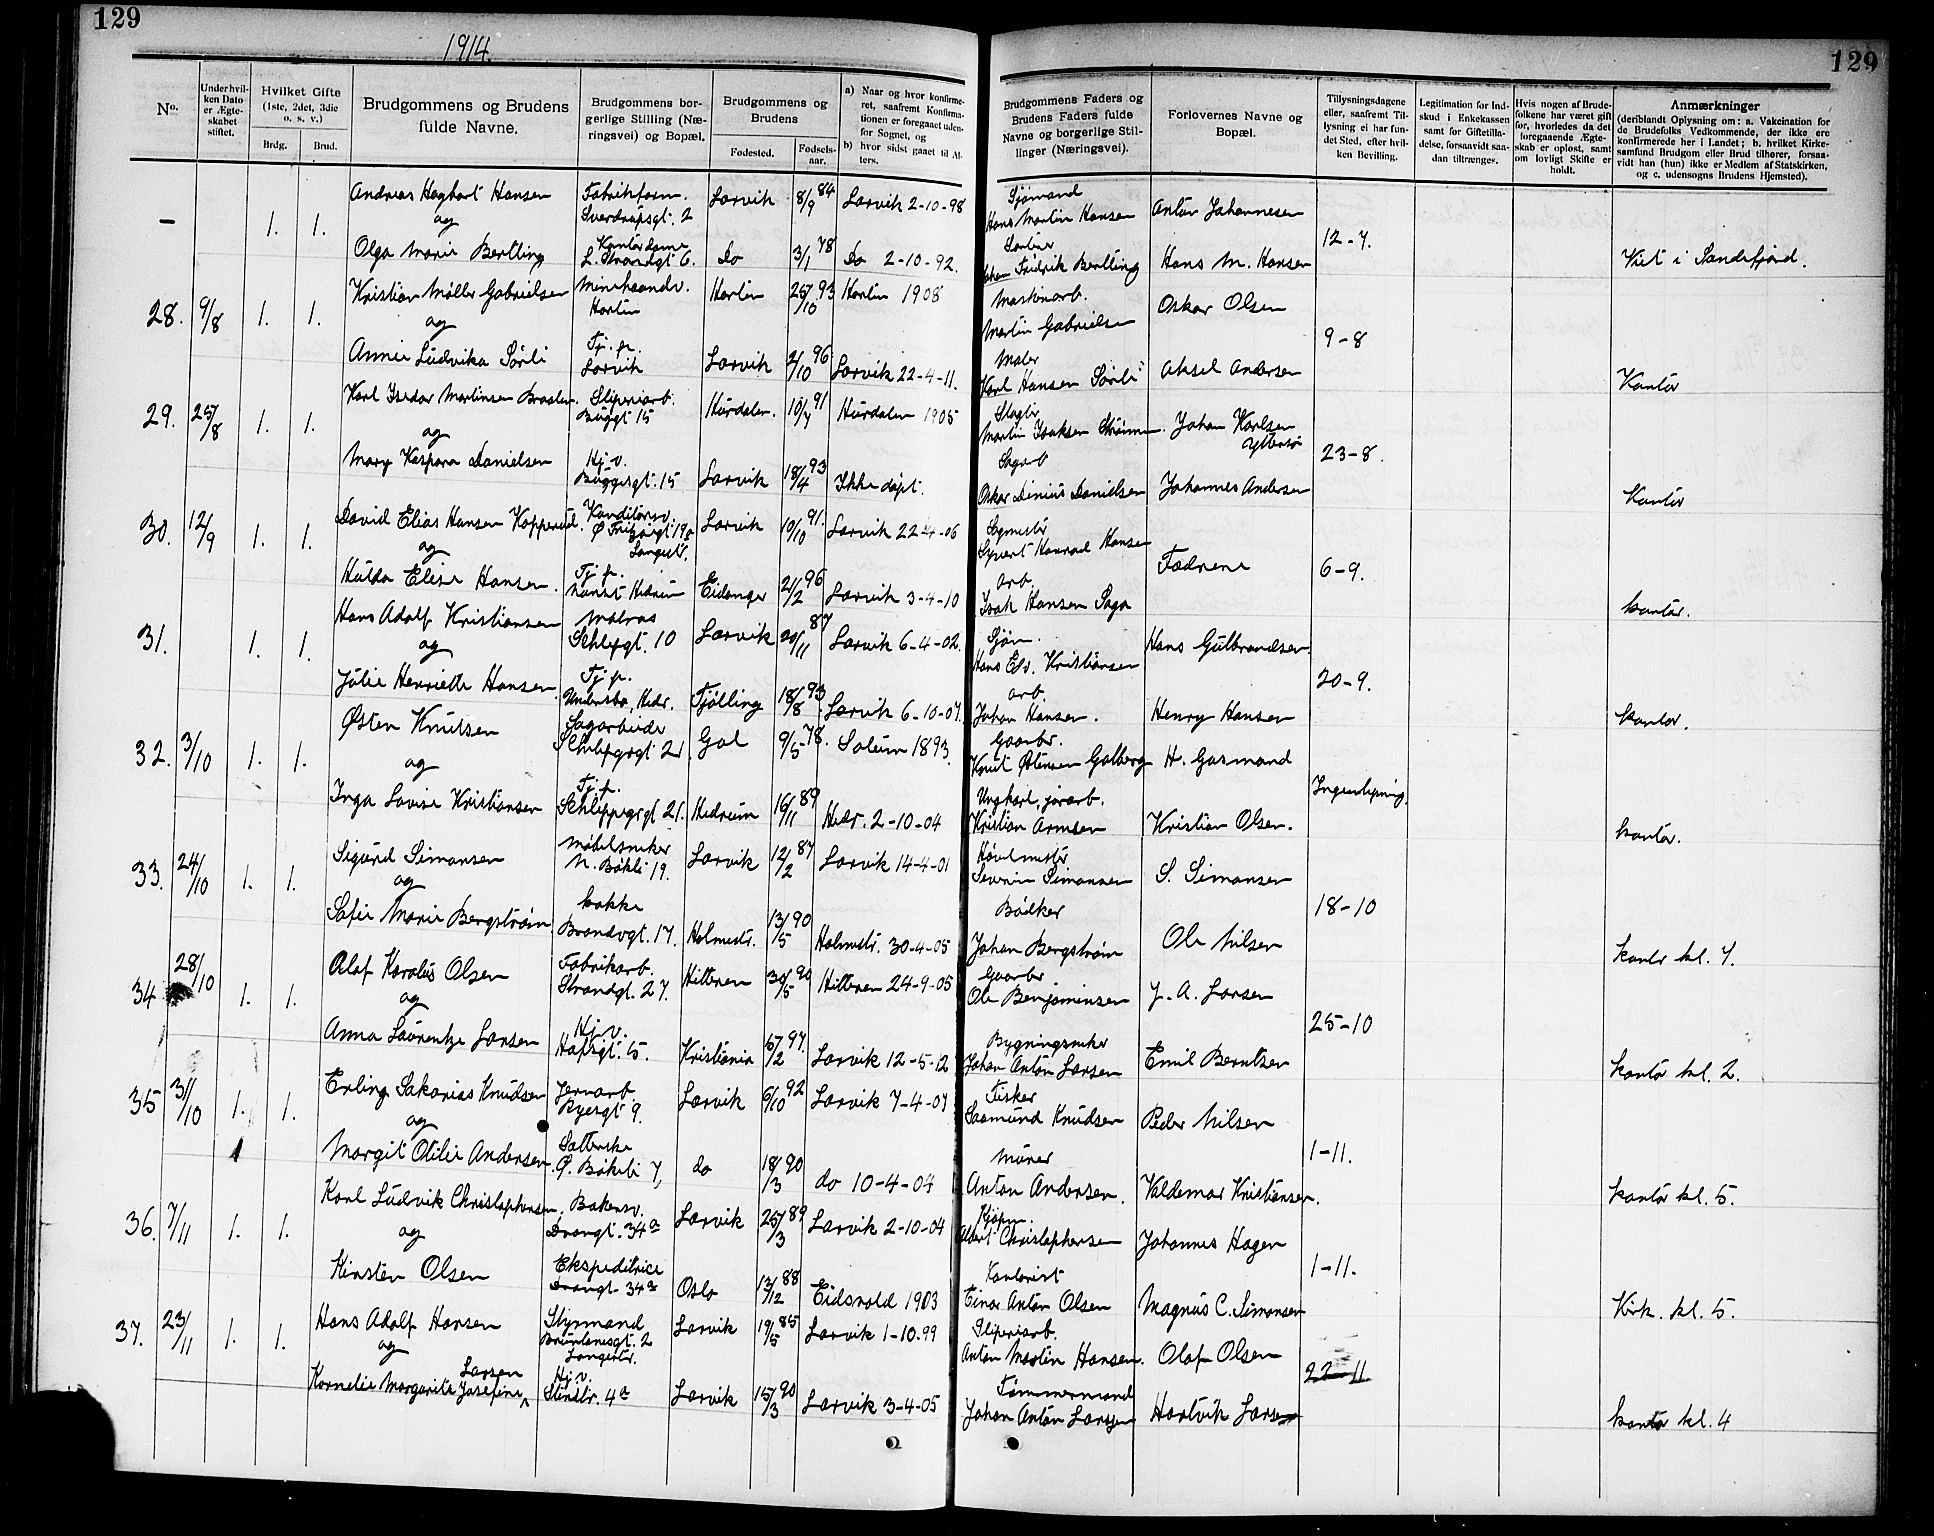 129
1914.
129
No.
Under hvilken Dato er Ægteskabet stiftet.
Hvilket Gifte (1ste, 2det, 3die o. s. v.)
Brdg.
Brud.
Brudgommens og Brudens fulde Navne.
Brudgommens borgerlige Stilling (Næringsvei) og Bopæl.
Brudgommens og Brudens
Fødested.
Fødselsaar.
a) Naar og hvor konfirmeret, saafremt Konfirmationen er foregaaet udenfor Sognet, og
b) hvor sidst gaaet til Alters.
Brudgommens Faders og Brudens Faders fulde Navne og borgerlige Stillinger (Næringsvei).
Forlovernes Navne og Bopæl.
Tillysningsdagene eller, saafremt Tillysning ei har fundet Sted, efter hvilken Bevilling.
Legitimation for Indskud i Enkekassen samt for Giftetilladelse, forsaavidt saadan tiltrænges.
Hvis nogen af Brudefolkene har været gift før, hvorledes da det foregaaende Ægteskab er opløst, samt om lovligt Skifte er holdt.
Anmærkninger
(deriblandt Oplysning om: a. Vakcination for de Brudefolks Vedkommende, der ikke ere konfirmerede her i Landet; b. hvilket Kirkesamfund Brudgom eller Brud tilhører, forsaavidt han (hun) ikke er Medlem af Statskirken, og c. udensogns Brudens Hjemsted).
— 1. 1. Andreas Haghart Hansen Sverdrupsgt. 2 Larvik 8/9 84 Larvik 2-10-98 Sjømand Hans Martin Hansen Anton Johannesen
og 12-7.
Olga Marie Bertling Kontordame L. Strandgt 6. Do 3/1 78 Do 2-10-92. Fridrik Bertling Hans M. Hansen Viet i Sandefjord.
28. 9/8 1. 1. Kristian Møller Gabrielsen 25/10 93 1908 Maskinarb. Martin Gabrielsen Oskar Olsen
og 9-8
Annie Ludvika Sørli Tj. p. Larvik Larvik 2/10 96 Larvik 22-4-11. Maler Karl Hansen Sørli Aksel Andersen Kontor
29. 25/8 1. 1. Karl Isidor Martinsen Braaten Sliperiarb. Buggt 15 Hurdalen. 10/7 91 Hurdalen 1905 Martin Isaksen Johan Karlsen
og 23-8.
Mary Kaspara Danielsen Hj. v. Buggesgt. 15 Larvik 18/4 93 Ikke døpt. Sagarb Oskar Dinius Danielsen Johannes Andersen Kontor
30. 12/9 1. 1. David Elias Hansen Kopperud. Kanditorsv. Langestr. Larvik 10/10 91. Larvik 22-4-06 Sagmester Syvert Konrad Hansen
og Fædrene 6-9.
Hulda Elise Hansen. Tj. p. Eidanger 21/2 96 Larvik 3-4-10 arb. Isak Hansen Saga kontor.
31. 1. 1. Hans Adolf Kristiansen Matros 10 Larvik 20/11 87 Larvik 6-4-02. Sjøm. Hans Edv. Kristiansen Hans Gulbrandsen
og 20-9.
Julie Henriette Hansen Tj. p. Hedr. Tjølling 18/8 93. Larvik 6-10-07. arb. Johan Hansen. Henry Hansen kontor.
32. 3/10 1. 1. Østen Knutsen Sagarbeide 21 Gol 9/5-78. Solum 1893. Gaarbr. Knut Østensen Golberg H. Gasmand
og
Inga Lovise Kristiansen Tj. p. Schleppegrgt 21. Hedrum 16/11 89 Hedr. 2-10-04 Ungkarl, jorarb. Kristian Arnesen Kristian Olsen. kontor.
33. 24/10 1. 1. Sigurd Simonsen Møbelsnekker N. Bøkeli 19. Larvik 12/2 87 Larvik 14-4-01 Høvelmester Severin Simonsen S. Simonsen
og 18-10
Sofie Marie Bergstrøm kokke Brandvgt. 17. Holmestr. 13/5 90 Holmestr. 30-4-05 Bødker Johan Bergstrøm Ole Nilsen kontor kl. 7.
34 28/10 1. 1. Olaf Karolius Olsen Fabrikarb. Strandgt. 27. Hitteren 30/5 90 Hitteren 24-9-05 Gaarbr Ole Benjaminsen J. A. Larsen
og 25-10
Anna Laurentze Larsen Hj. v. 5. Kristiania 5/2 97. Larvik 12-5-12 Bygningssnker Johan Anton Larsen Emil Berntsen kontor kl. 2.
35 31/10 1. 1. Erling Sakarias Knudsen Jernarb. Ryesgt 9. Larvik 6/10 92 Larvik 7-4-07 Fisker Saamund Knudsen Peder Nilsen
og 1-11.
Margit Otilie Andersen Ø. Bøkeli 7, do 18/3 90 do 10-4-04 Murer Anton Andersen. Valdemar Kristiansen. kontor kl. 5.
36. 7/11 1. 1. Karl Ludvik Christophersen, Bakersv. Drangt. 34a Larvik 25/3 89 Larvik 2-10-04 Kjøpm. Albert Christophersen Johannes Hagen
og 1-11.
Kirsten Olsen Ekspeditrice Drangt 34a Oslo 13/12 88 Eidsvold 1903 Kontorist Einar Anton Olsen Magnus C. Simonsen Kirk. kl. 5.
37. 23/11 1. 1. Hans Adolf Hansen Styrmand Langestr. Larvik 19/5 85 Larvik 1-10.99 Sliperiarb. Anton Martin Hansen. Olaf Olsen
og 22-11
Kornelie Margarite Josefine Larsen Hj. v. Stenstr. 4a Larvik 15/3 90 Larvik 3-4-05 Tømmermand Johan Anton Larsen Hartvik Larsen kontor kl. 4